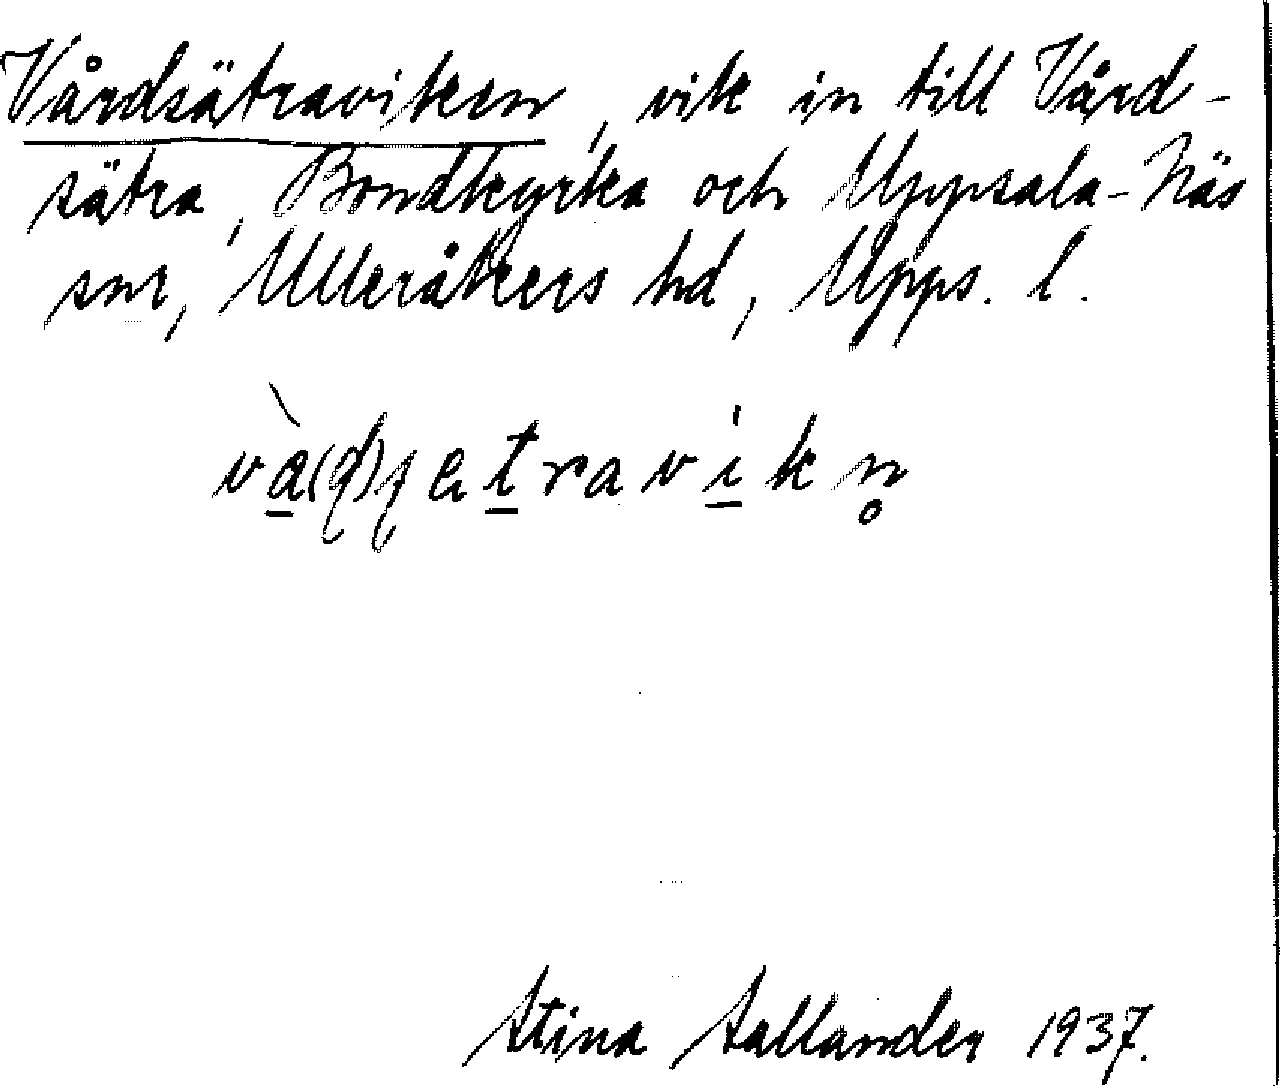 Vårdsätraviken, vik in till Vård-
sätra, Bondkyrka och Uppsala-Näs
snr, Ulleråkers hd, Upps. l.
Stina Sallander 1937.